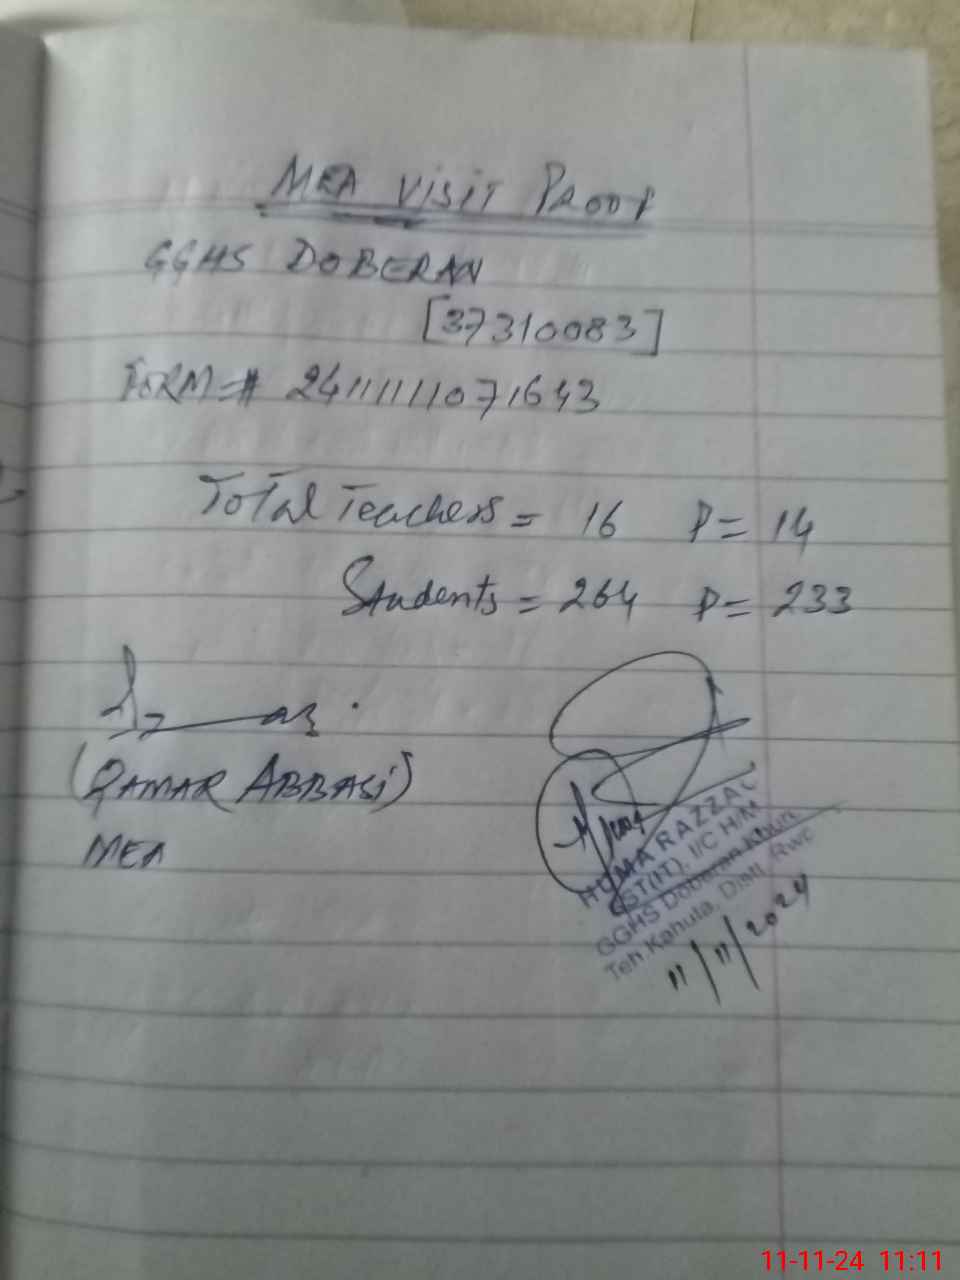 MEA VISIT PROOF
GGHS DOBERAN
[37310083]
FORM=# 2411111071643
Total Teachers = 16 P= 14
Students = 264 P= 233
(QAMAR ABBASI)
MEA
HUMA RAZZAC
SST(IT), I/C H/M
GGHS Doberan Khurd
Teh Kahuta, Distt. Rwp
11/11/2024
11-11-24 11:11